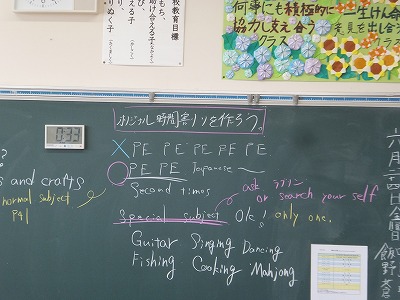 校教育目標
もち、
び、
助け合える子
える子
りぬく子
何事にも積極的に
協力し支え合う
クラス
生けん命
意見を出し合う
0:33
オリジナル時間割りを作ろう。
X PE PE PE PE PE
○ PE PE Japanese
Second times
?
s and crafts
normal subject
P41
Special subject OK! only one.
ask
or search your self
Guitar Singing Dancing
Fishing Cooking Mahjong
六月二十四日金曜
飯野 蒼